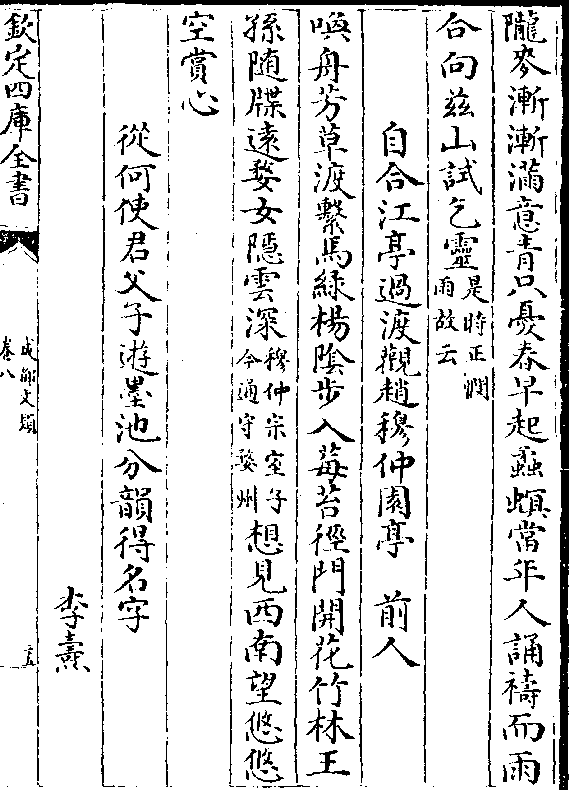 隴麥漸漸滿意青只憂春旱起螽螟當年人誦禱而雨
合向兹山試乞靈是時正憫
雨故云
自合江亭過渡觀趙穆仲園亭 前人
喚舟芳草渡繫馬緑楊隂步入莓苔徑門開花竹林王
孫随牒遠婺女隠雲深穆仲宗室子
今通守婺州想見西南望悠悠
空賞心
從何使君父子遊墨池分韻得名字
李燾
欽定四庫全書
成都文類
卷八
十五